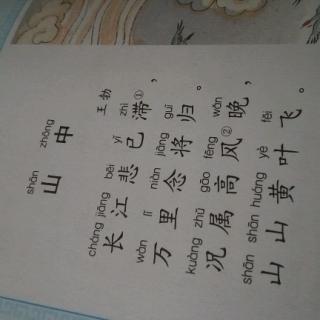 shān zhōng
山中
王勃
cháng jiāng bēi yǐ zhì
长江悲已滞①，
wàn lǐ niàn jiāng guī
万里念将归。
kuàng zhǔ gāo fēng wǎn
况属高风②晚，
shān shān huáng yè fēi
山山黄叶飞。